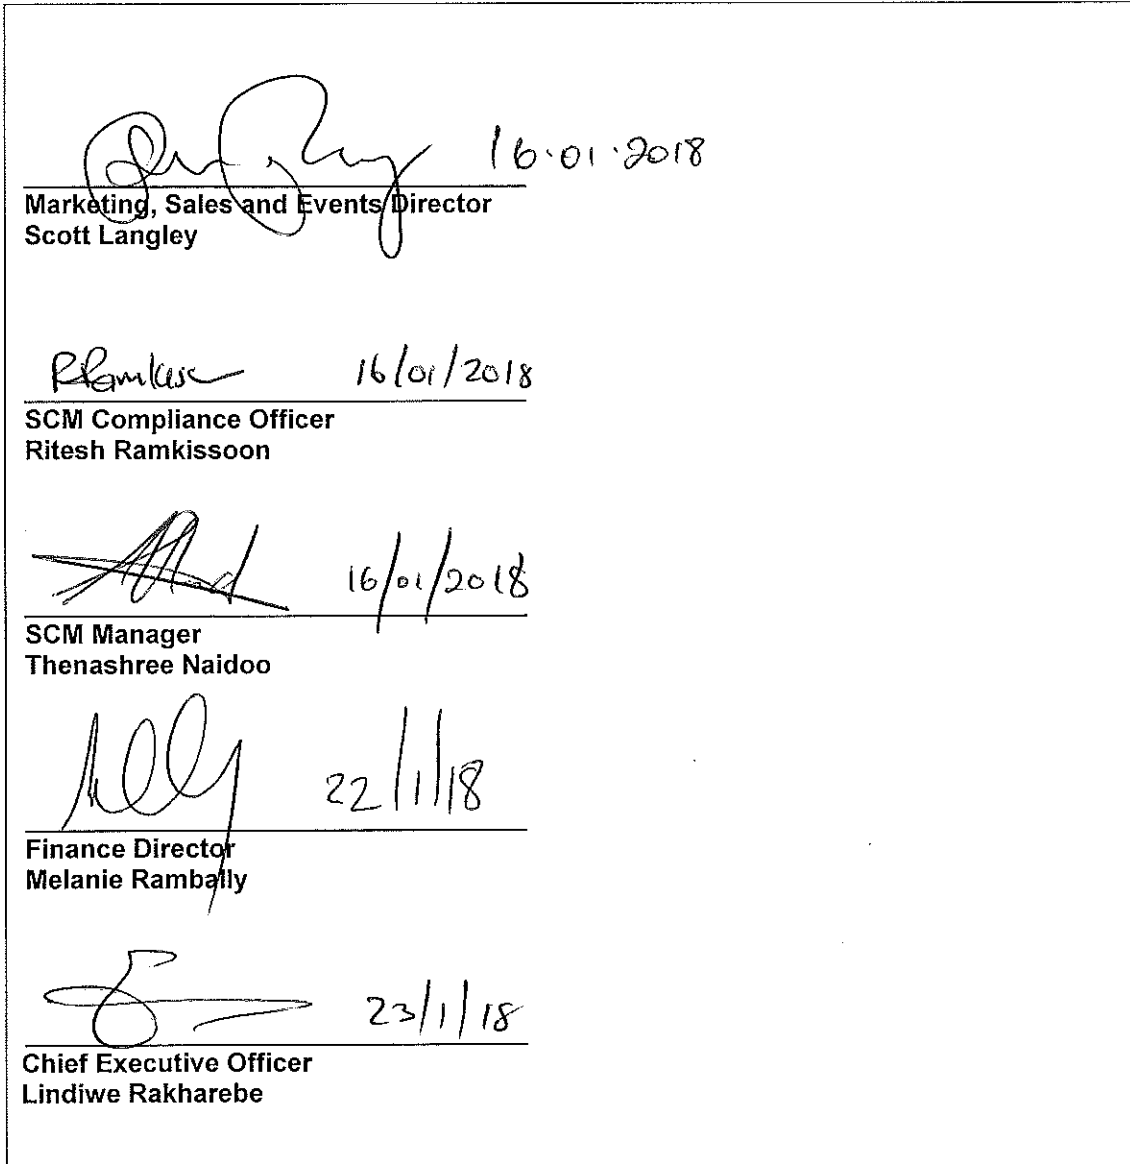 16.01.2018
Marketing, Sales and Events Director
Scott Langley
16/01/2018
SCM Compliance Officer
Ritesh Ramkissoon
16/01/2018
SCM Manager
Thenashree Naidoo
22/1/18
Finance Director
Melanie Rambally
23/1/18
Chief Executive Officer
Lindiwe Rakharebe